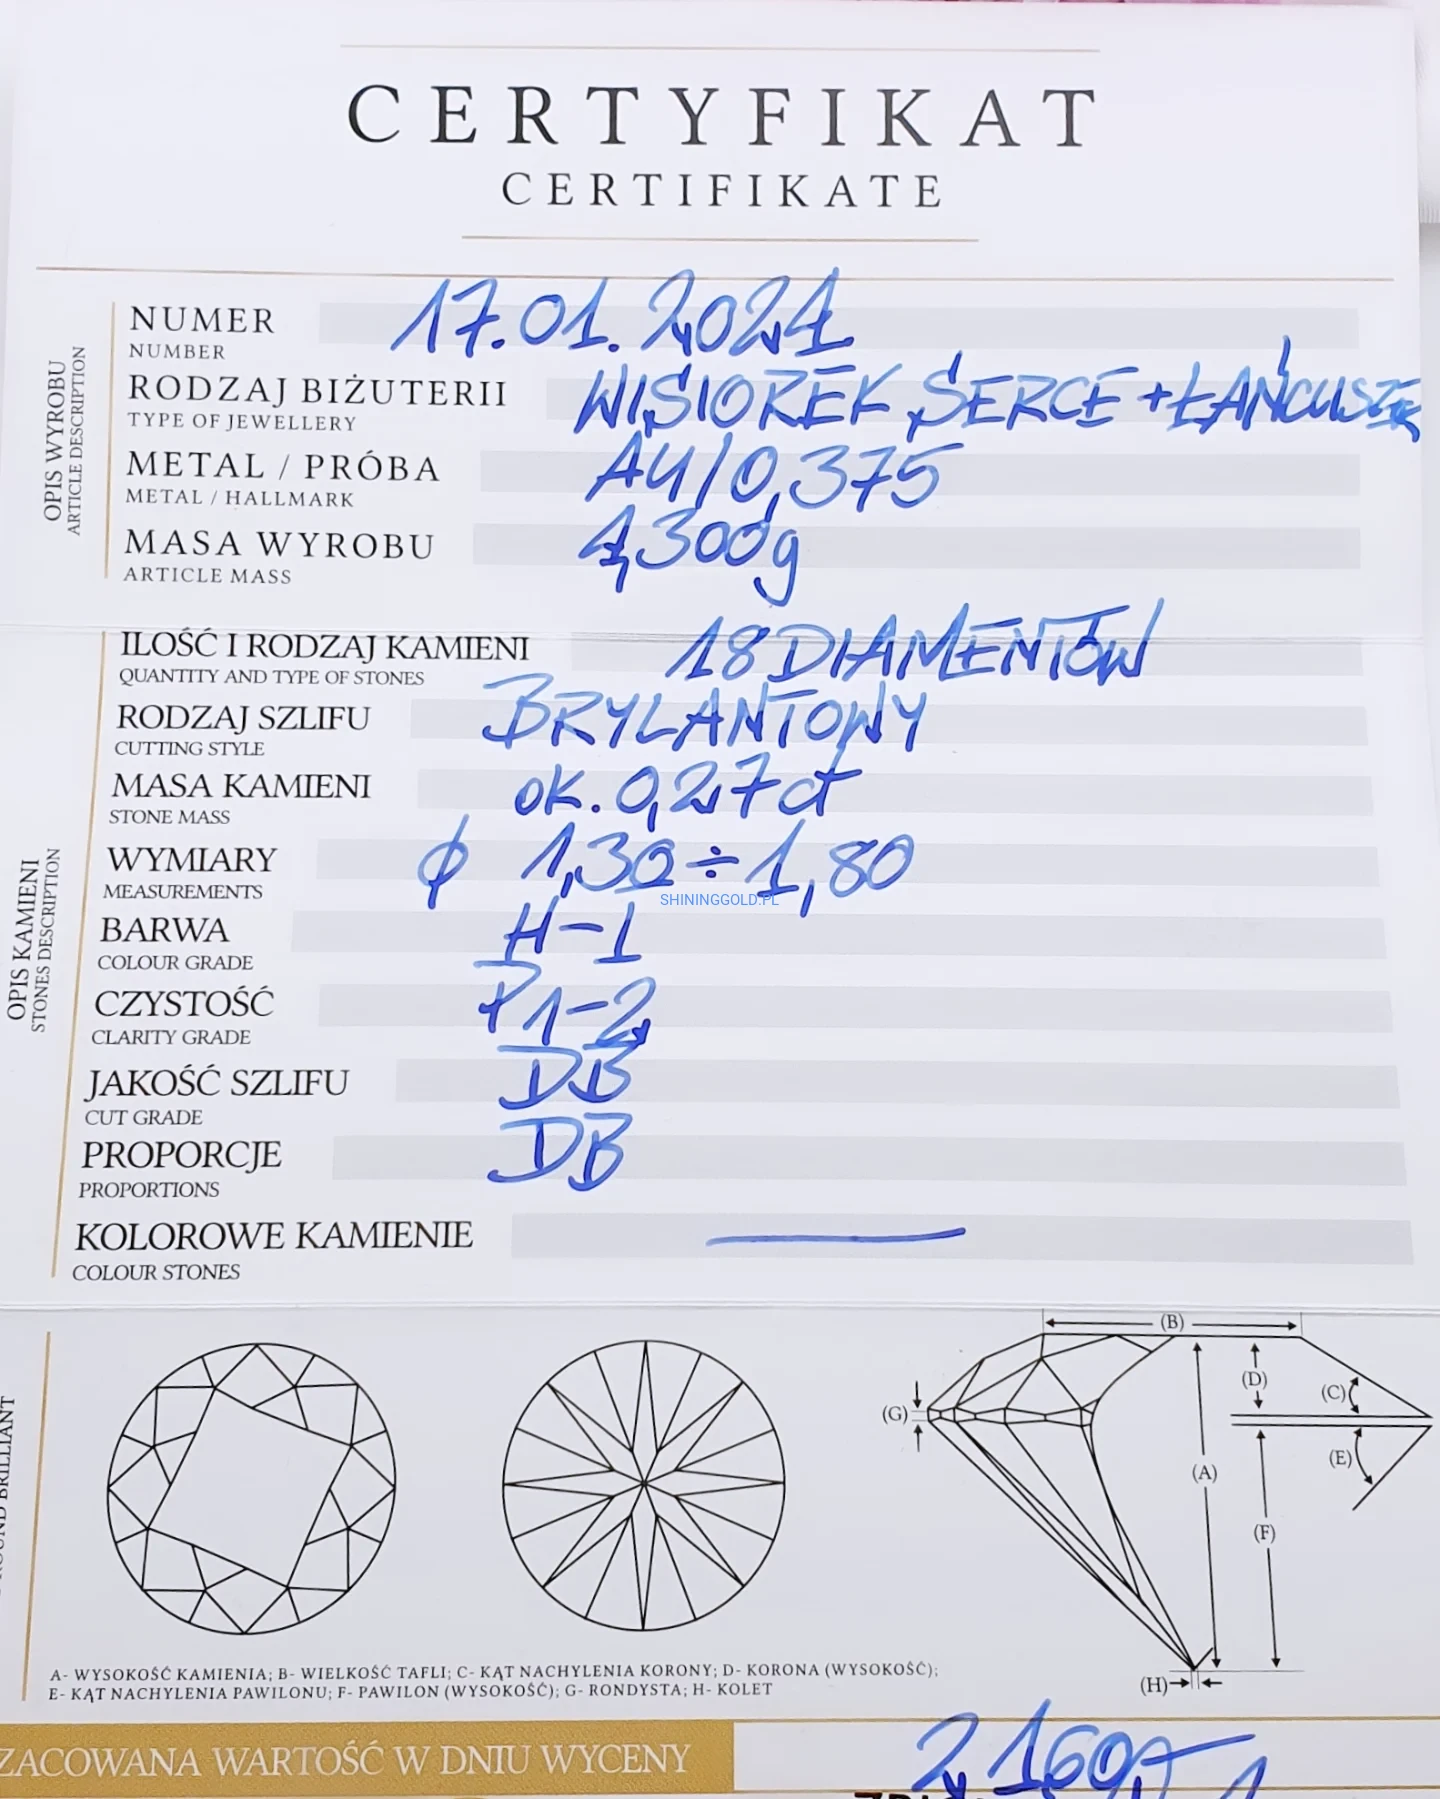 CERTYFIKAT
CERTIFIKATE
OPIS WYROBU
ARTICLE DESCRIPTION
NUMER 17.01.2024
NUMBER
RODZAJ BIŻUTERII WISIOREK SERCE + ŁAŃCUSZEK
TYPE OF JEWELLERY
METAL / PRÓBA AU/0,375
METAL / HALLMARK
MASA WYROBU 4,300g
ARTICLE MASS
OPIS KAMIENI
STONES DESCRIPTION
ILOŚĆ I RODZAJ KAMIENI 18 DIAMENTÓW
QUANTITY AND TYPE OF STONES
RODZAJ SZLIFU BRYLANTOWY
CUTTING STYLE
MASA KAMIENI ok. 0,27ct
STONE MASS
WYMIARY ϕ 1,30÷1,80
MEASUREMENTS
SHININGGOLD.PL
BARWA H-I
COLOUR GRADE
CZYSTOŚĆ P1-2
CLARITY GRADE
JAKOŚĆ SZLIFU DB
CUT GRADE
PROPORCJE DB
PROPORTIONS
KOLOROWE KAMIENIE —
COLOUR STONES
ROUND BRILLIANT
(B)
(D)
(C)
(G)
(E)
(A)
(F)
(H)
A- WYSOKOŚĆ KAMIENIA; B- WIELKOŚĆ TAFLI; C- KĄT NACHYLENIA KORONY; D- KORONA (WYSOKOŚĆ);
E- KĄT NACHYLENIA PAWILONU; F- PAWILON (WYSOKOŚĆ); G- RONDYSTA; H- KOLET
ZACOWANA WARTOŚĆ W DNIU WYCENY 2,160